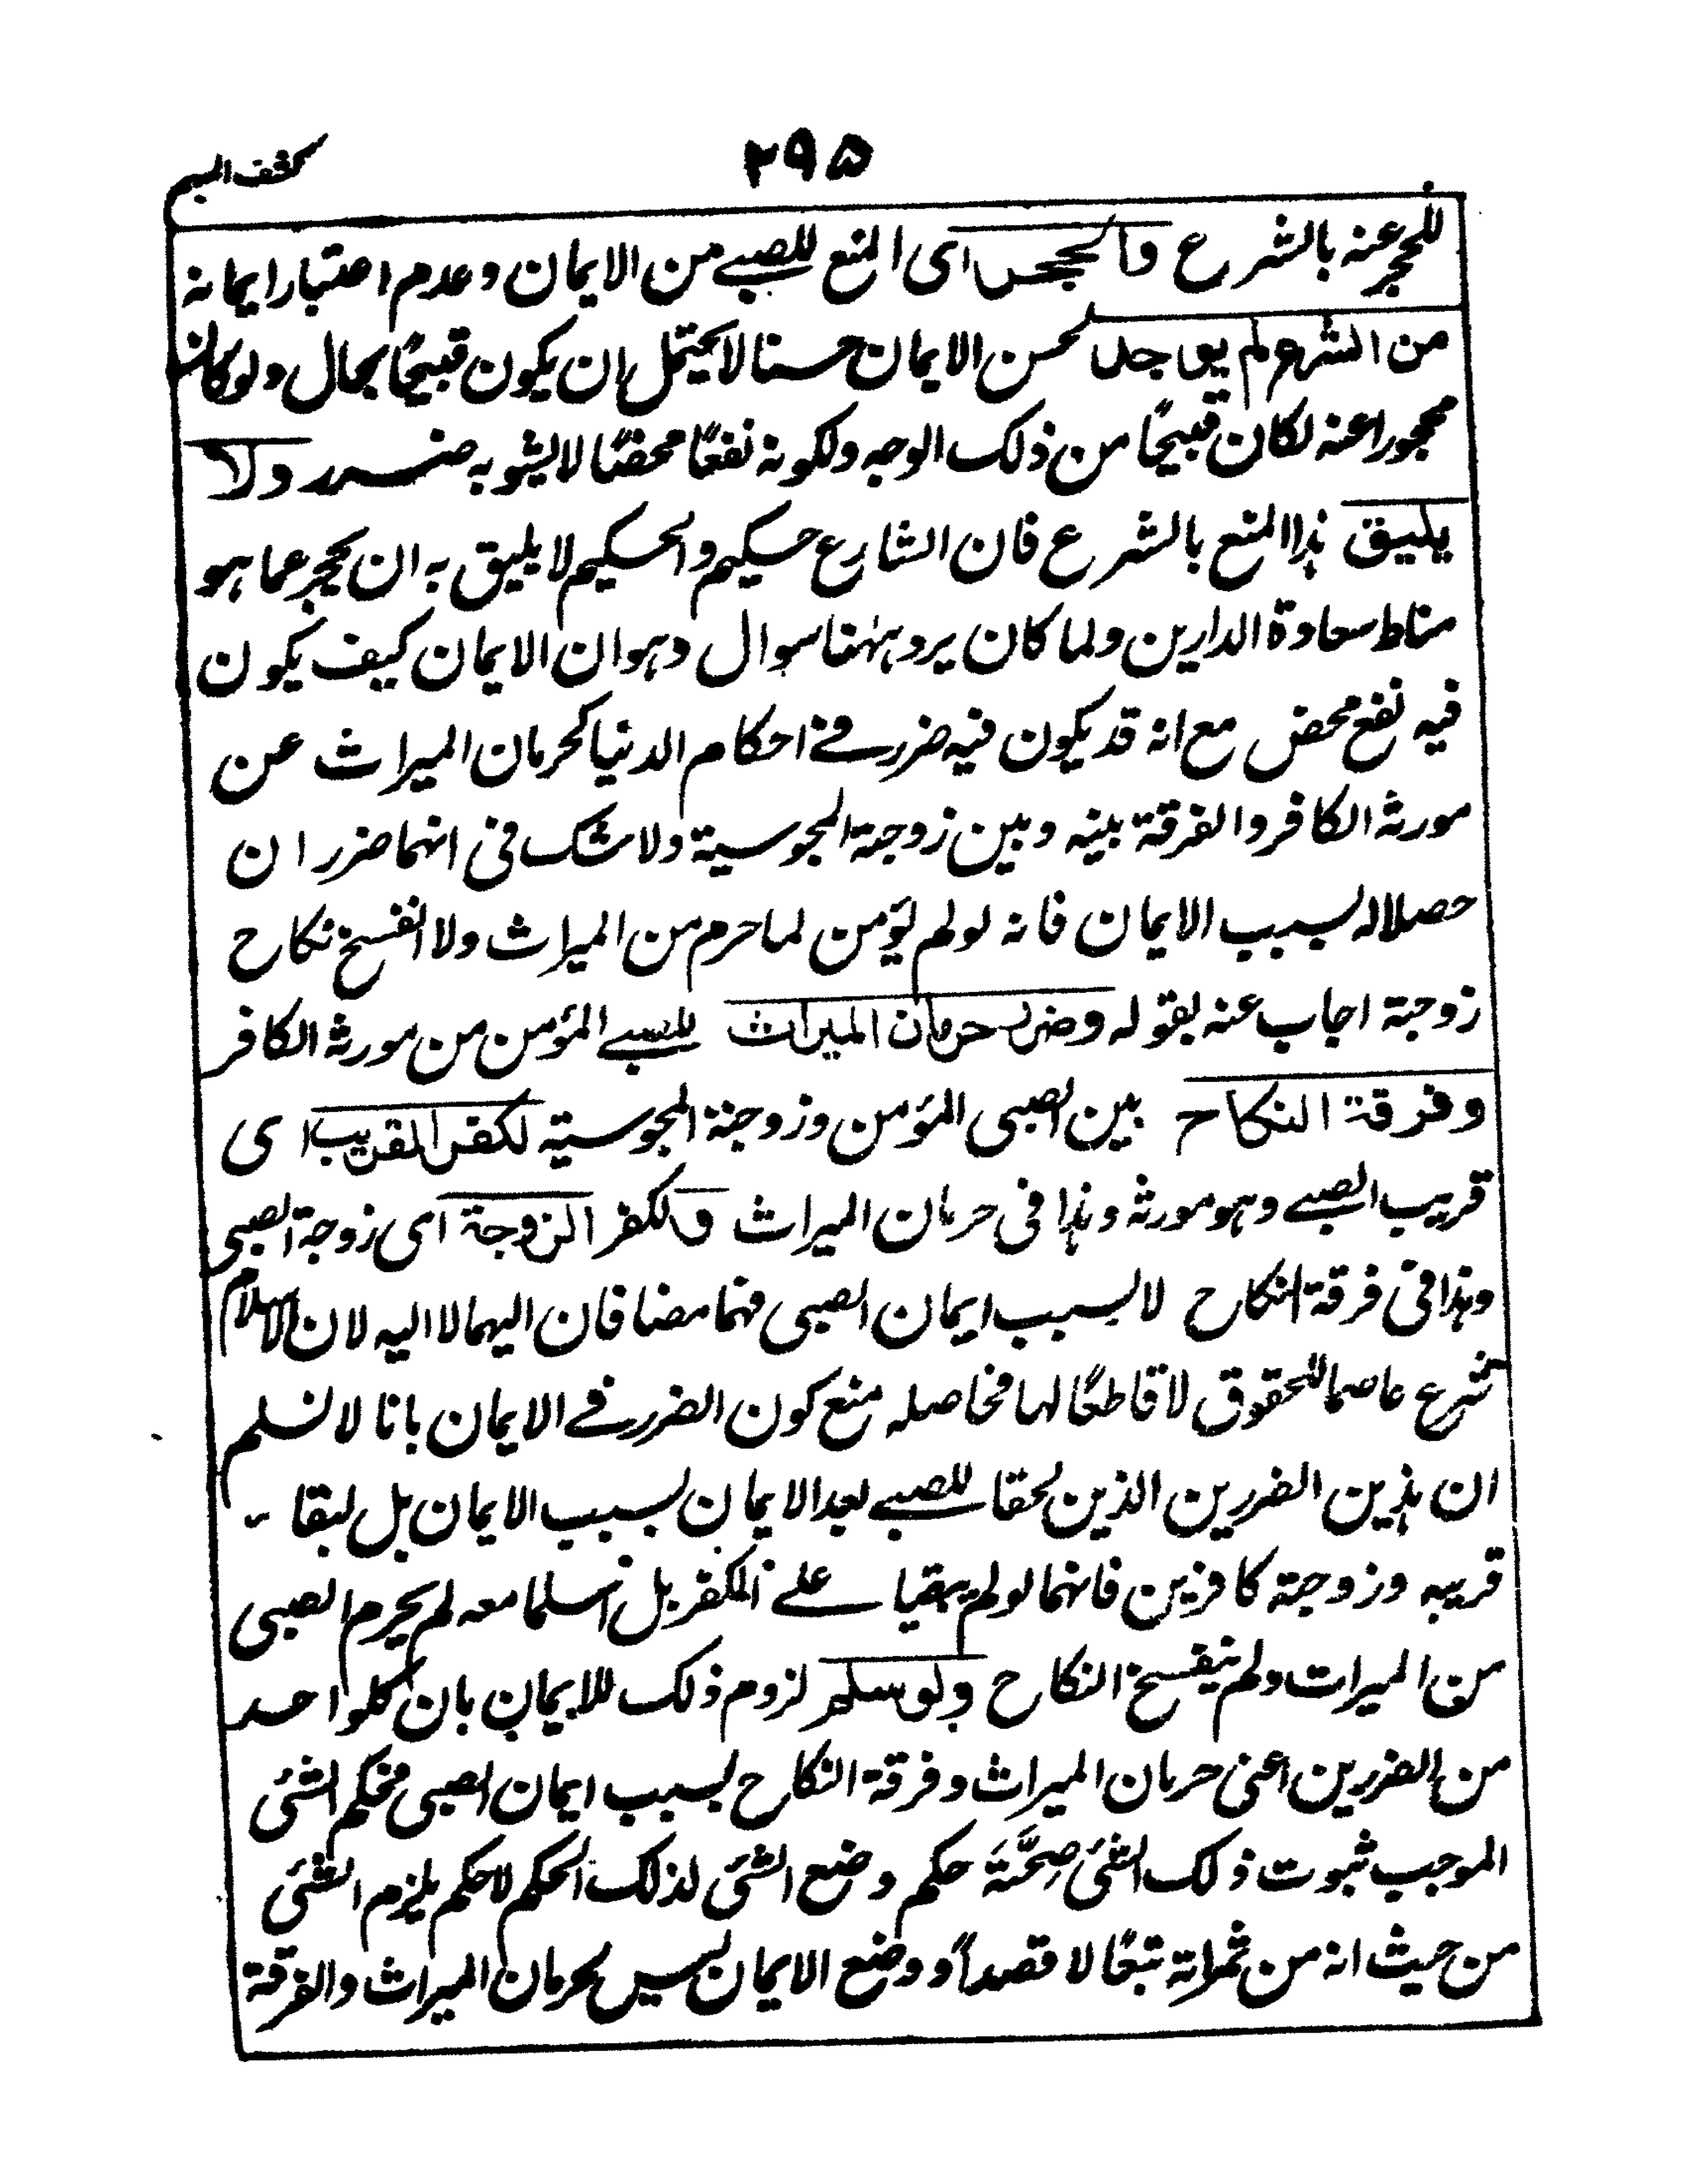 ۲۹۵
كشف المبهم
للحجر عنه بالشرع فالحجر اى المنع للصبے من الايمان وعدم اعتبار ايمانه
من الشرع لم يوجد لحسن الايمان حسنا لا يحتمل ان يكون قبيحًا بحال ولو كان
محجورا عنه لكان قبيحًا من ذلك الوجه ولكونه نفعًا محضًا لا يشوبه ضرر ولا
يليق هذا المنع بالشرع فان الشارع حكيم والحكيم لا يليق به ان يحجر عما هو
مناط سعادة الدارين ولما كان يرد ههنا سوال وهو ان الايمان كيف يكون
فيه نفع محض مع انه قد يكون فيه ضرر فے احكام الدنيا كحرمان الميراث عن
مورثه الكافر والفرقة بينه وبين زوجته المجوسية ولا شك فى انهما ضرر ان
حصلا له بسبب الايمان فانه لو لم يؤمن لما حرم من الميراث ولا انفسخ نكاح
زوجته اجاب عنه بقوله وضرر حرمان الميراث للصبے المؤمن من مورثه الكافر
وفرقة النكاح بين الصبى المؤمن وزوجته المجوسية لكفر القريب اى
قريب الصبے وهو مورثه وهذا فى حرمان الميراث ولكفر الزوجة اى زوجة الصبى
وهذا فى فرقة النكاح لا بسبب ايمان الصبى فهما مضافان اليهما لا اليه لان الاسلام
شرع عاصما للحقوق لا قاطعًا لها فحاصله منع كون الضرر فے الايمان بانا لا نسلم
ان هذين الضررين الذين لحقا للصبے بعد الايمان بسبب الايمان بل لبقاء
قريبه وزوجته كافرين فانهما لو لم يبقيا علے الكفر بل اسلما معه لم يحرم الصبى
من الميراث ولم ينفسخ النكاح ولو سلم لزوم ذلك للايمان بان كلواحد
من الضررين اعنى حرمان الميراث وفرقة النكاح بسبب ايمان الصبى فحكم الشئ
الموجب ثبوت ذلك الشئ صِحَّتَه حكم وضع الشئ لذلك الحكم لا حكم يلزم الشئ
من حيث انه من ثمراته تبعًا لا قصداً ووضع الايمان ليس لحرمان الميراث والفرقة